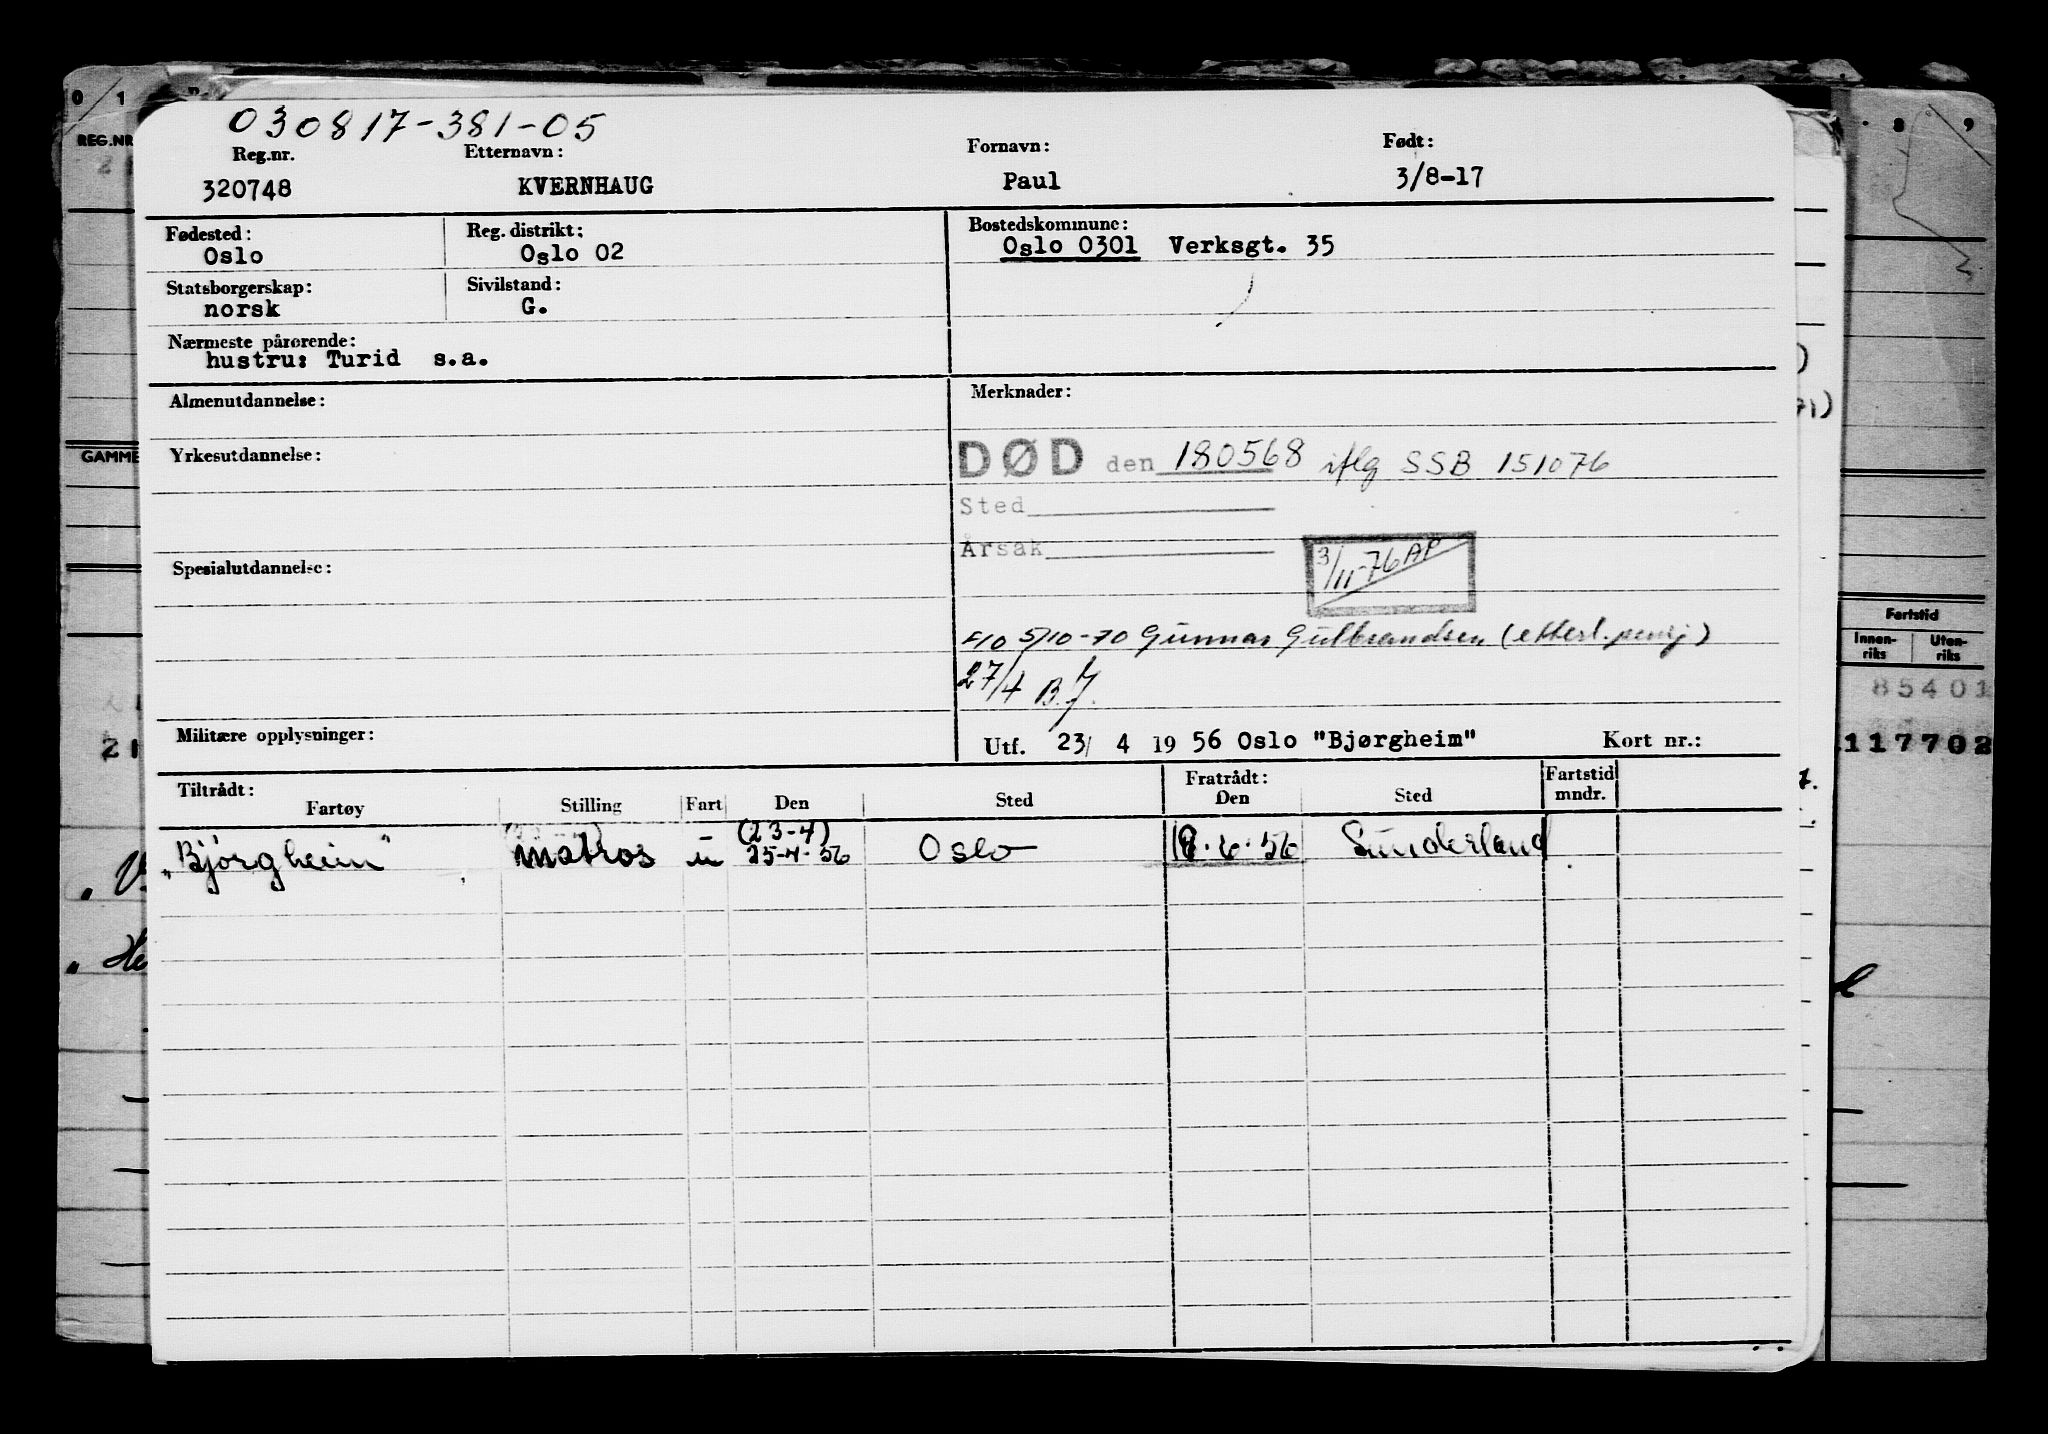 030817-381-05
Reg.nr. Etternavn: Fornavn: Født:
320748 KVERNHAUG Paul 3/8-17
Fødested: Reg. distrikt: Bostedskommune:
Oslo Oslo 02 Oslo 0301 Verksgt. 35
Statsborgerskap: Sivilstand:
norsk G.
Nærmeste pårørende:
hustru: Turid s.a.
Almenutdannelse: Merknader:
Yrkesutdannelse: DØD den 180568 iflg SSB 151076
Sted
Årsak
3/11-76 AP
Spesialutdannelse:
F10 5/10-70 Gunnar Gulbrandsen (etterl. pensj)
27/4 B.J.
Militære opplysninger: Utf. 23/ 4 19 56 Oslo "Bjørgheim" Kort nr.:
Tiltrådt: Fratrådt: Fartstid
Fartøy Stilling Fart Den Sted Den Sted mndr.
(23-4)
"Bjørgheim" matros u 25-4-56 Oslo 18.6.56 Sunderland
0 1
REG.NR
GAMME
8 9
Fartstid
Innen-riks Uten-riks
85401
117702